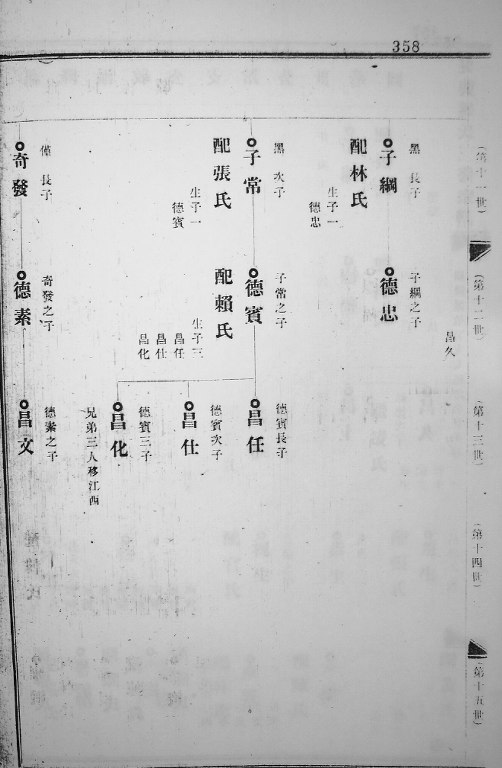 358
(第十一世)
(第十二世)
(第十三世)
(第十四世)
(第十五世)
昌久
黑長子
子綱
配林氏
生子一
德忠
子綱之子
德忠
黑次子
子常
配張氏
生子一
德賓
子常之子
德賓
配賴氏
生子三
昌任
昌仕
昌化
德賓長子
昌任
德賓次子
昌仕
德賓三子
昌化
兄弟三人移江西
長子
奇發
奇發之子
德素
德素之子
昌文